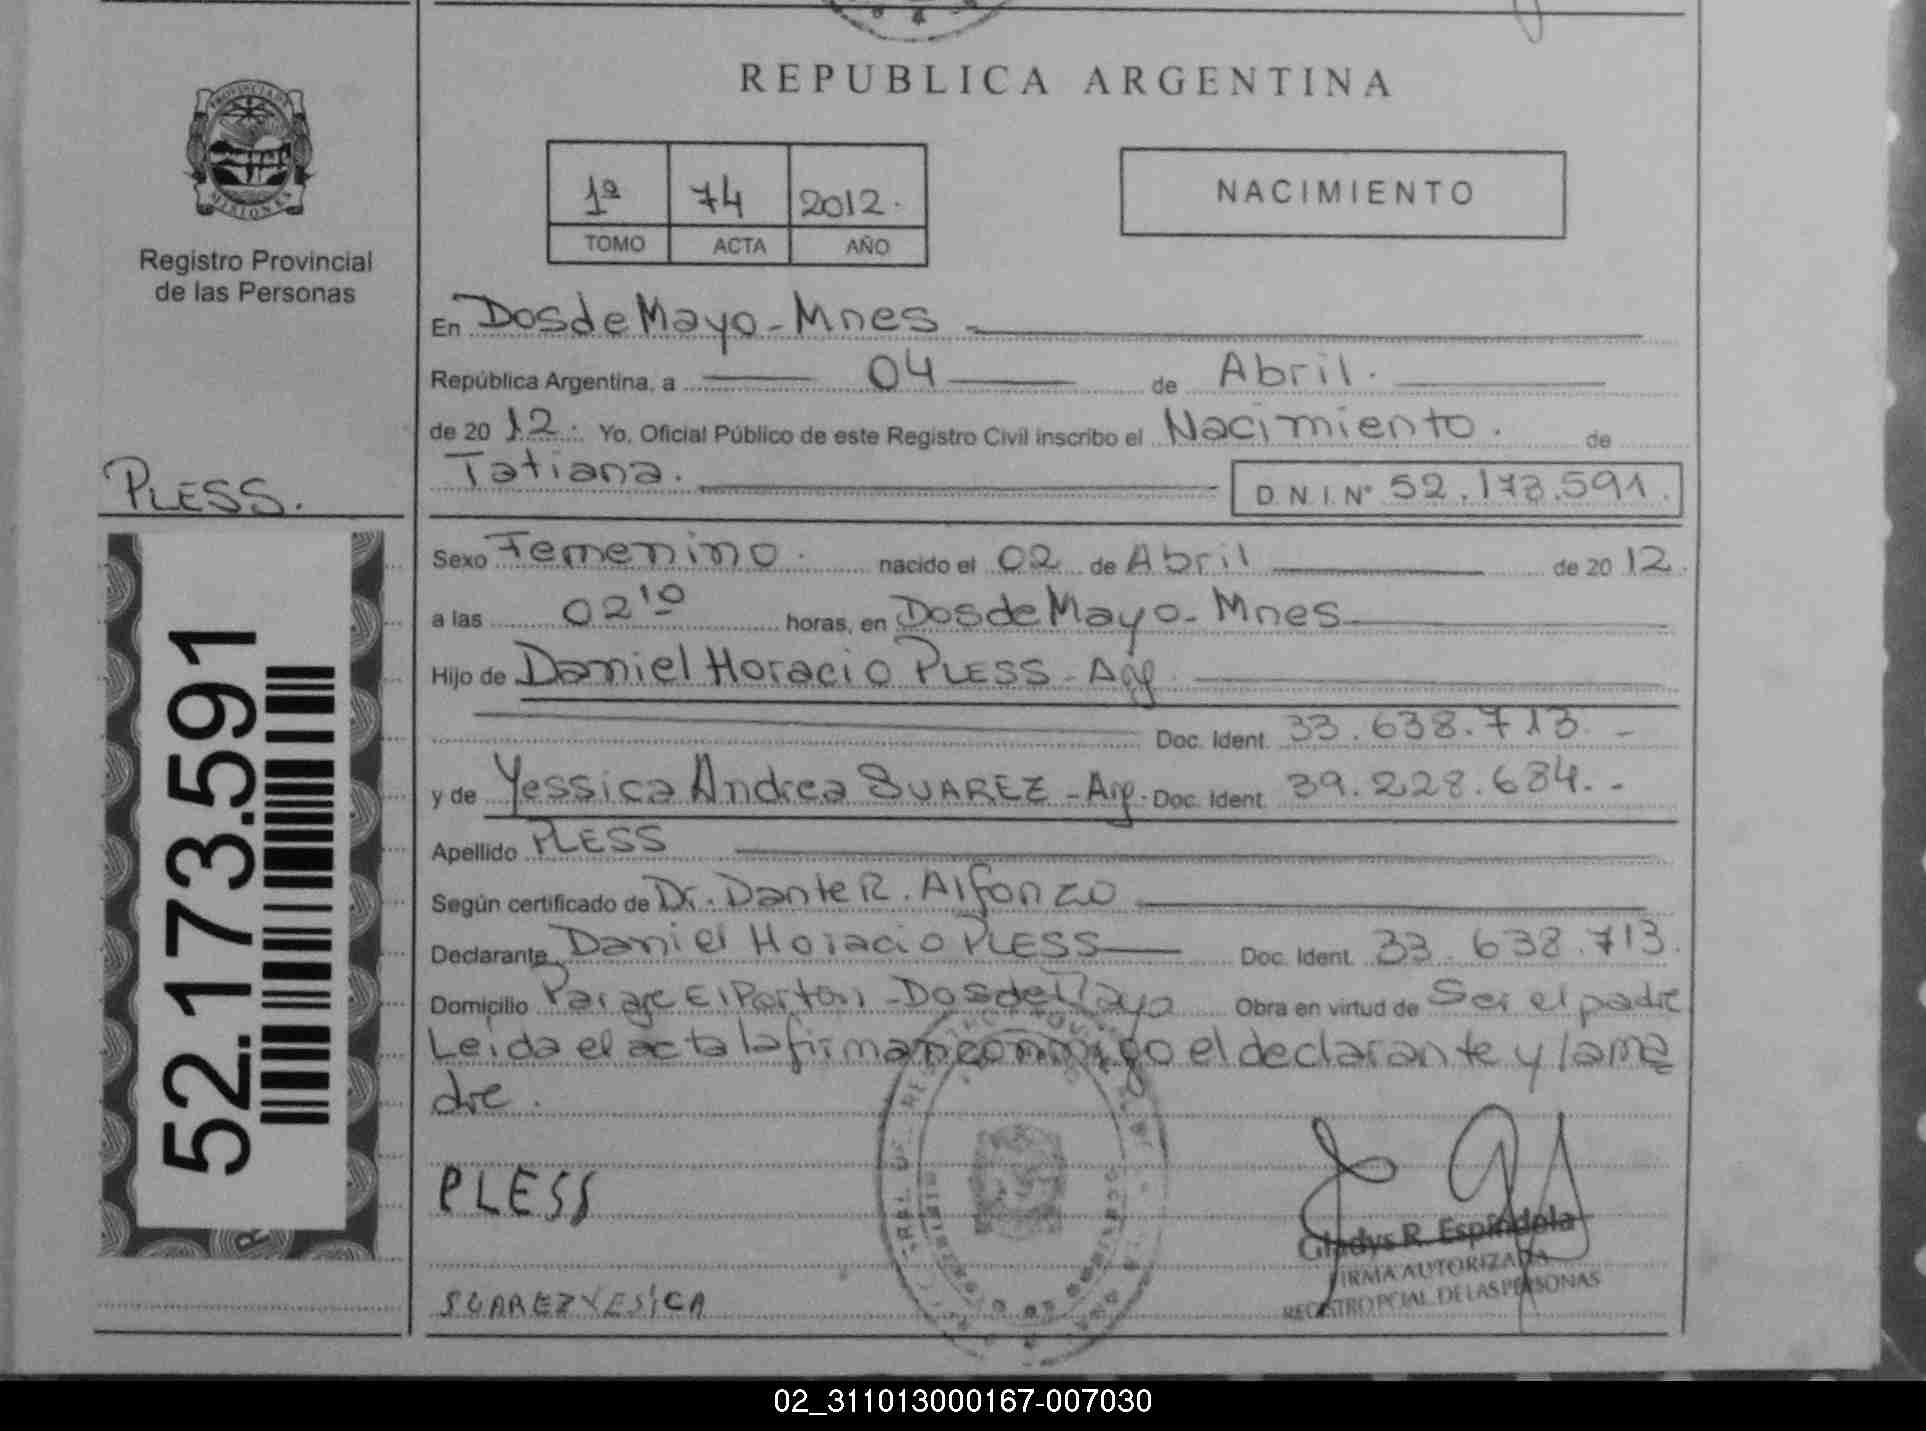 REPUBLICA ARGENTINA
PROVINCIA DE
MISIONES
Registro Provincial
de las Personas
1ª 74 2012.
TOMO ACTA AÑO
NACIMIENTO
En Dos de Mayo - Mnes
República Argentina, a 04 de Abril.
de 2012. Yo, Oficial Público de este Registro Civil inscribo el Nacimiento. de
Tatiana. D.N.I.Nº 52.173.591.
PLESS.
52.173.591
Sexo Femenino. nacido el 02 de Abril de 2012.
a las 02¹⁰ horas, en Dos de Mayo - Mnes
Hijo de Daniel Horacio PLESS - Arg.
Doc. Ident. 33.638.713. -
y de Yessica Andrea SUAREZ - Arg. Doc. Ident. 39.228.684. -
Apellido PLESS
Según certificado de Dr. Dante R. Alfonzo
Declarante Daniel Horacio PLESS Doc. Ident. 33.638.713.
Domicilio Paraje El Portón - Dos de Mayo Obra en virtud de Ser el padre
Leida el acta la firman conmigo el declarante y la ma
dre.
PLESS
SUAREZ YESICA
Gladys R. Espindola
FIRMA AUTORIZADA
REGISTRO PCIAL. DE LAS PERSONAS
02_311013000167-007030